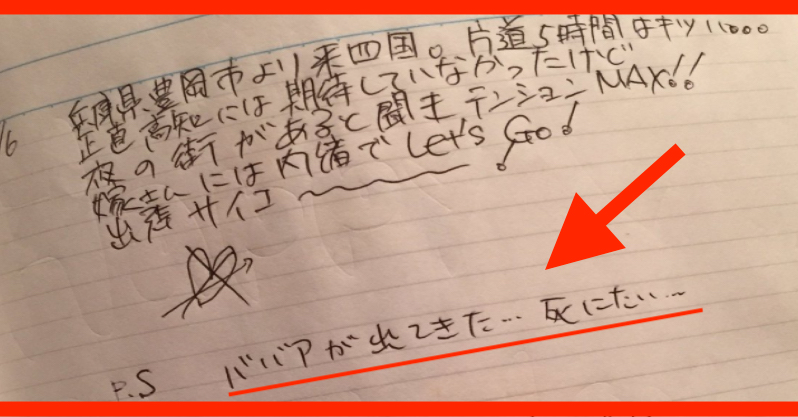 兵庫県豊岡市より来四国。片道5時間はキツい。。。
正直高知には期待していなかったけど
夜の街があると聞きテンションMAX!!
嫁さんには内緒でLet's Go!
出張サイコー〜!
P.S ババアが出てきた… 死にたい…